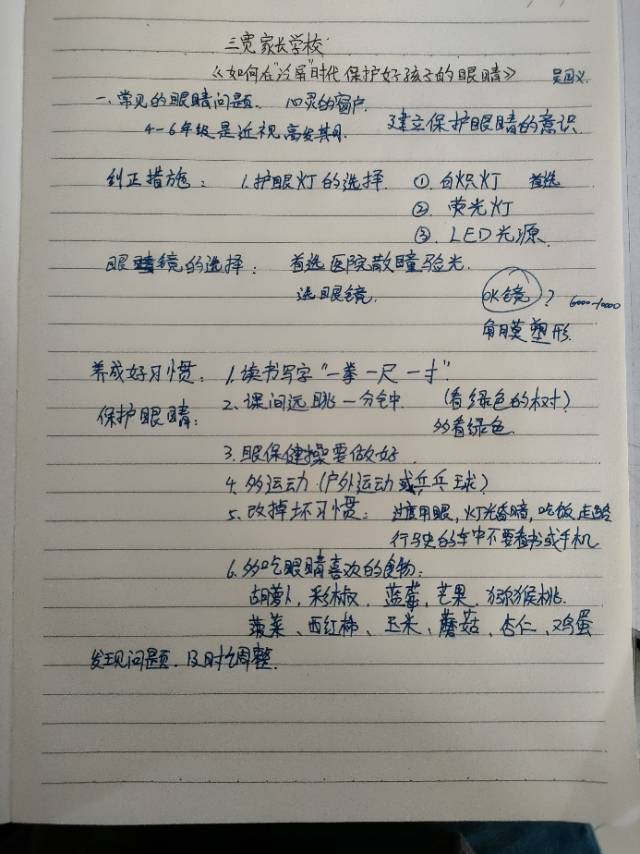 三宽家长学校
《如何在"冷屏"时代保护好孩子的眼睛》
一、常见的眼睛问题、心灵的窗户
4-6年级是近视高发期. 建立保护眼睛的意识
纠正措施: 1.护眼灯的选择 ①.白炽灯 首选
②. 荧光灯
③. LED光源.
眼睛镜的选择: 首选医院散瞳验光.
选眼镜. OK镜? 6000-10000
角膜塑形.
养成好习惯: 1.读书写字"一拳一尺一寸".
保护眼睛: 2.课间远眺一分钟. (看绿色的树)
多看绿色.
3.眼保健操要做好.
4.多运动(户外运动或乒乓球)
5.改掉坏习惯: 过度用眼,灯光昏暗,吃饭走路
行驶的车中不要看书或手机
6.多吃眼睛喜欢的食物:
胡萝卜,彩椒,蓝莓,芒果,猕猴桃.
菠菜、西红柿、玉米、蘑菇、杏仁、鸡蛋
发现问题.及时调整.